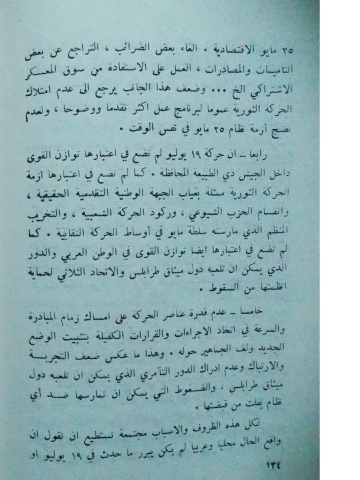 ٢٥ مايو الاقتصادية ٠ الغاء بعض الضرائب ، التراجع عن بعض
التأميمات والمصادرات ، العمل على الاستفادة من سوق المعسكر
الاشتراكي الخ ٠٠٠ وضعف هذا الجانب يرجع الى عدم امتلاك
الحركة الثورية عموما لبرنامج عمل اكثر تقدما ووضوحا ، ولعدم
نضج ازمة نظام ٢٥ مايو في نفس الوقت ٠
رابعا ــ ان حركة ١٩ يوليو لم تضع في اعتبارها توازن القوى
داخل الجيش ذي الطبيعة المحافظة ٠ كما لم تضع في اعتبارها ازمة
الحركة الثورية ممثلة بغياب الجبهة الوطنية التقدمية الحقيقية ،
وانقسام الحزب الشيوعي ، وركود الحركة الشعبية ، والتخريب
المنظم الذي مارسته سلطة مايو في أوساط الحركة النقابية ٠ كما
لم تضع في اعتبارها ايضا توازن القوى في الوطن العربي والدور
الذي يمكن ان تلعبه دول ميثاق طرابلس والاتحاد الثلاثي لحماية
انظمتها من السقوط ٠
خامسا ــ عدم قدرة عناصر الحركة على امساك زمام المبادرة
والسرعة في اتخاذ الاجراءات والقرارات الكفيلة بتثبيت الوضع
الجديد ولف الجماهير حوله ٠ وهذا ما عكس ضعف التجربة
والارتباك وعدم ادراك الدور التآمري الذي يمكن ان تلعبه دول
ميثاق طرابلس ، والضغوط التي يمكن ان تمارسها ضد أي
نظام يفلت من قبضتها ٠
لكل هذه الظروف والاسباب مجتمعة نستطيع ان نقول ان
واقع الحال محليا وعربيا لم يكن يبرر ما حدث في ١٩ يوليو او
١٣٤